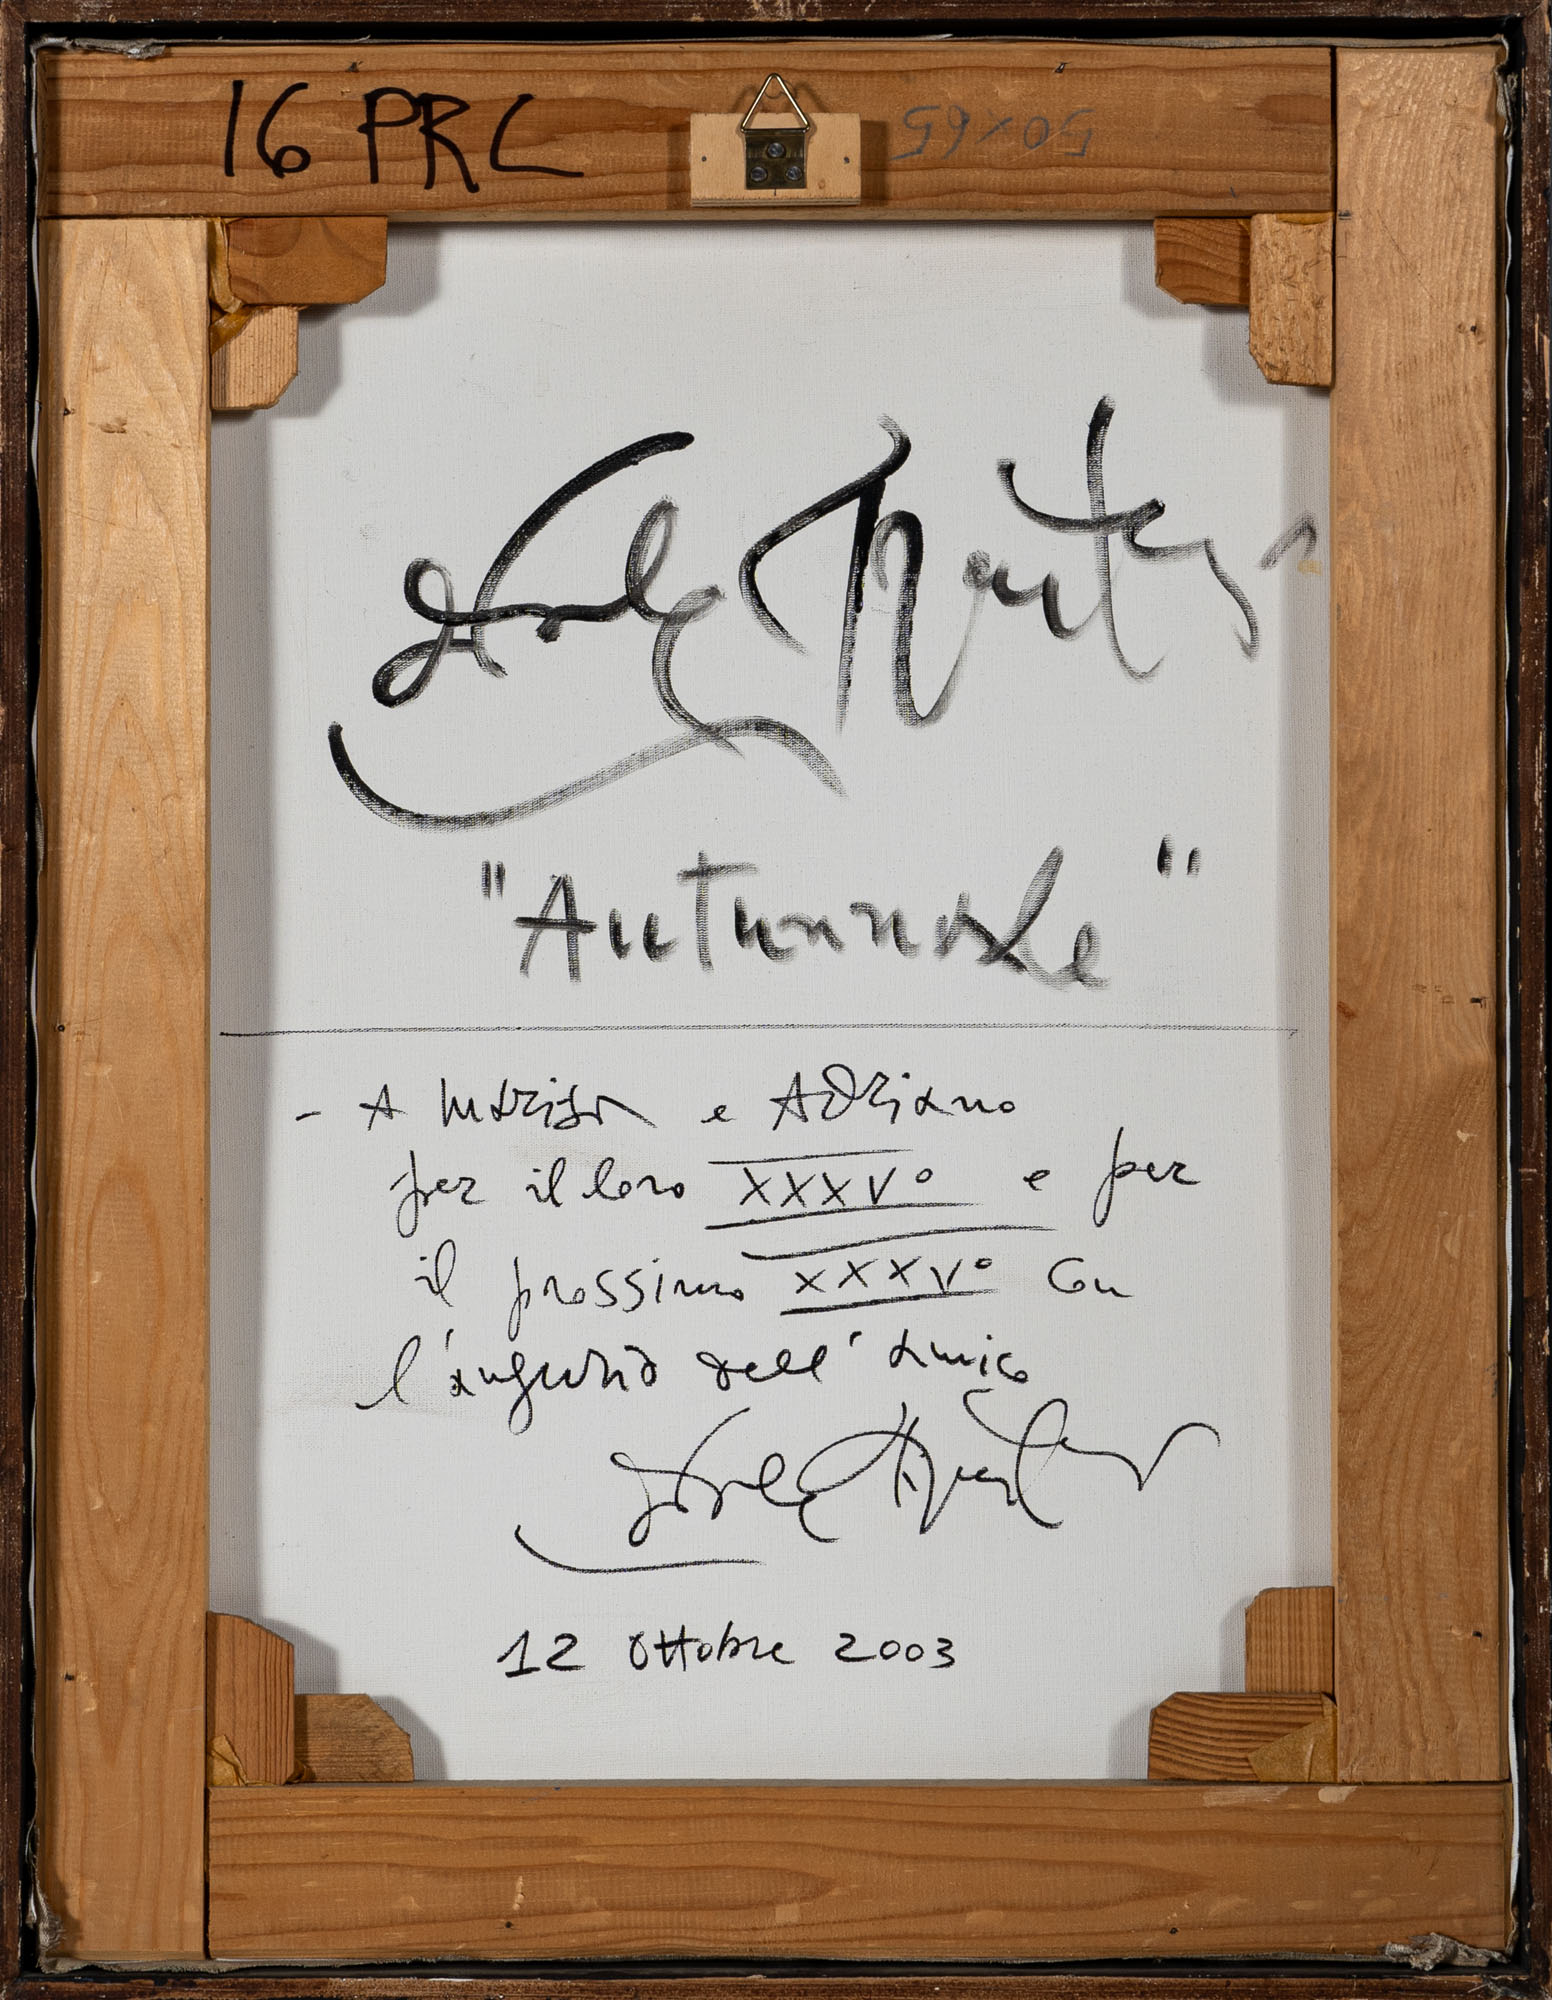 16 PRL
50x65
"Autunnale"
- A Marisa e Adriano
per il loro XXXV° e per
il prossimo XXXV° con
l'augurio dell'amico
12 Ottobre 2003